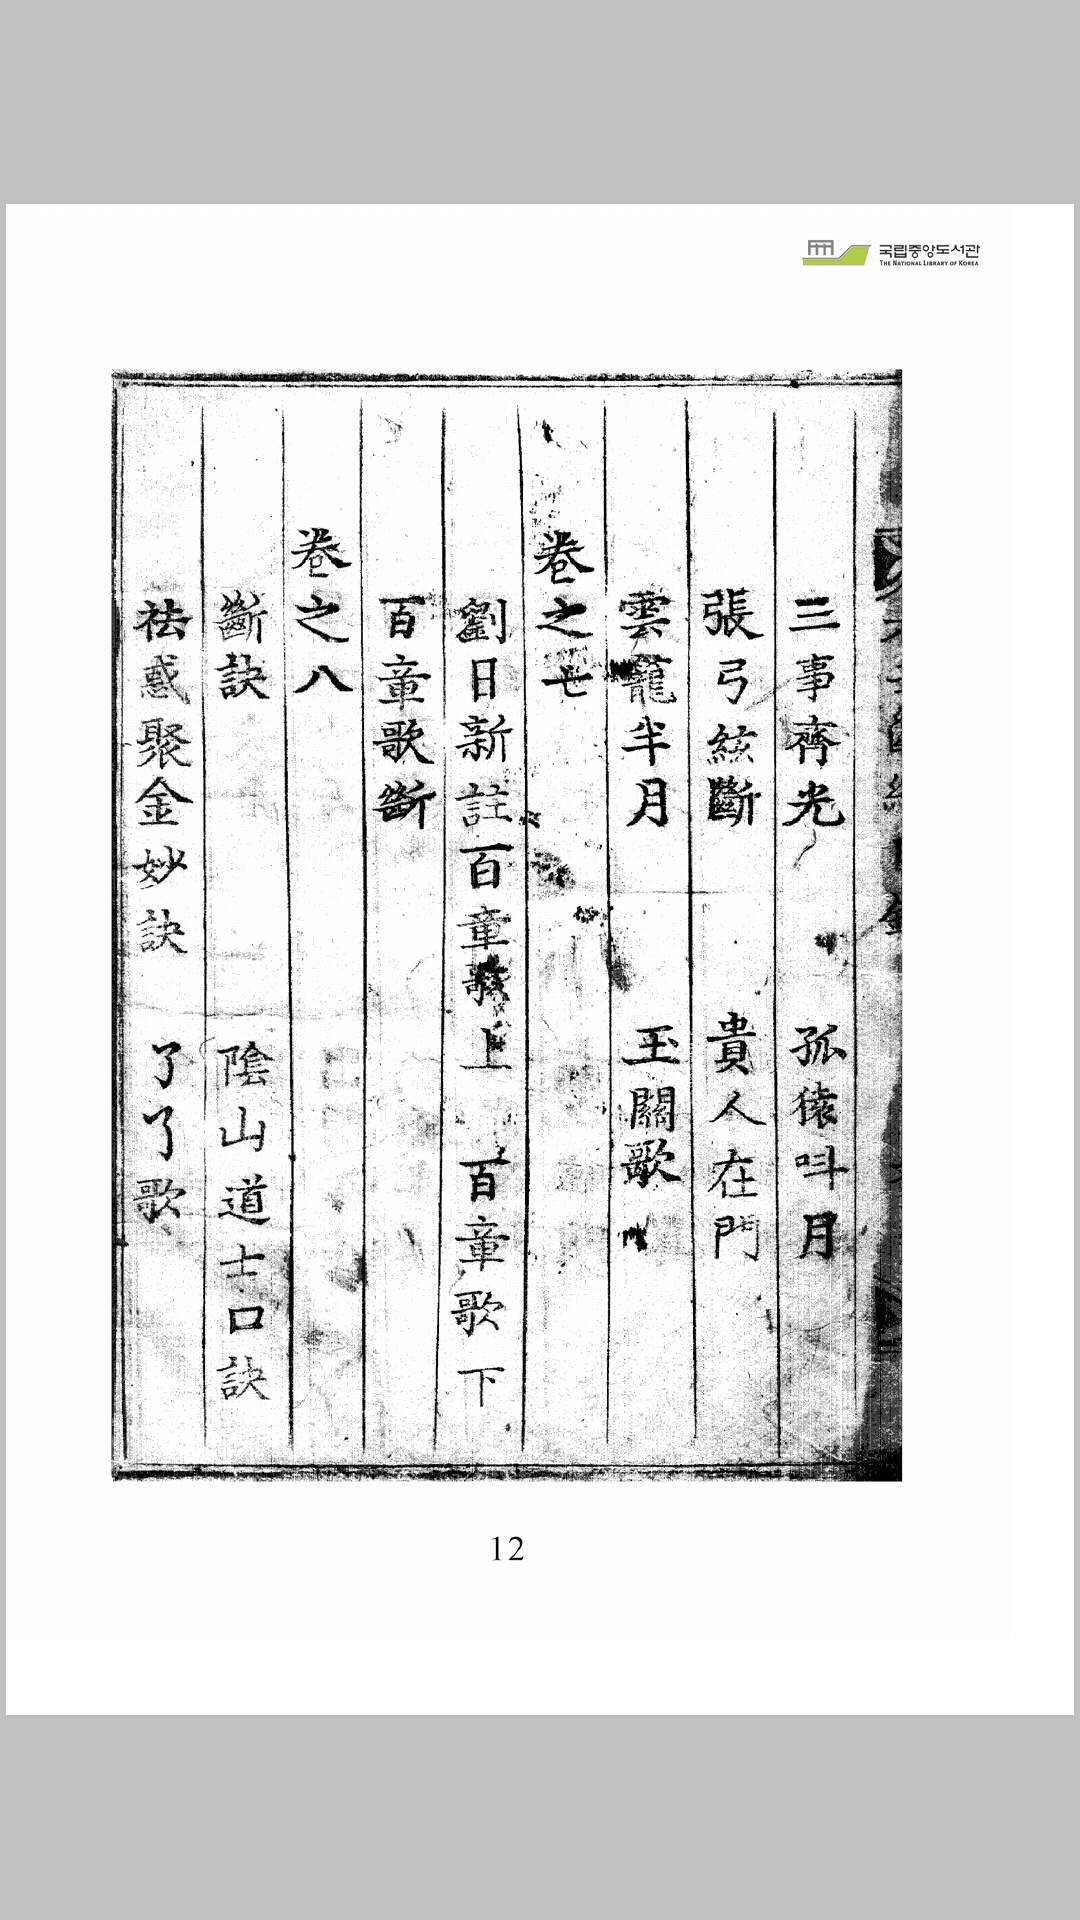 국립중앙도서관
THE NATIONAL LIBRARY OF KOREA
三事齊光 孤猿呌月
張弓絃斷 貴人在門
雲籠半月 玉關歌
卷之七
劉日新註百章歌上 百章歌下
百章歌斷
卷之八
斷訣 陰山道士口訣
祛惑聚金妙訣 了了歌
12